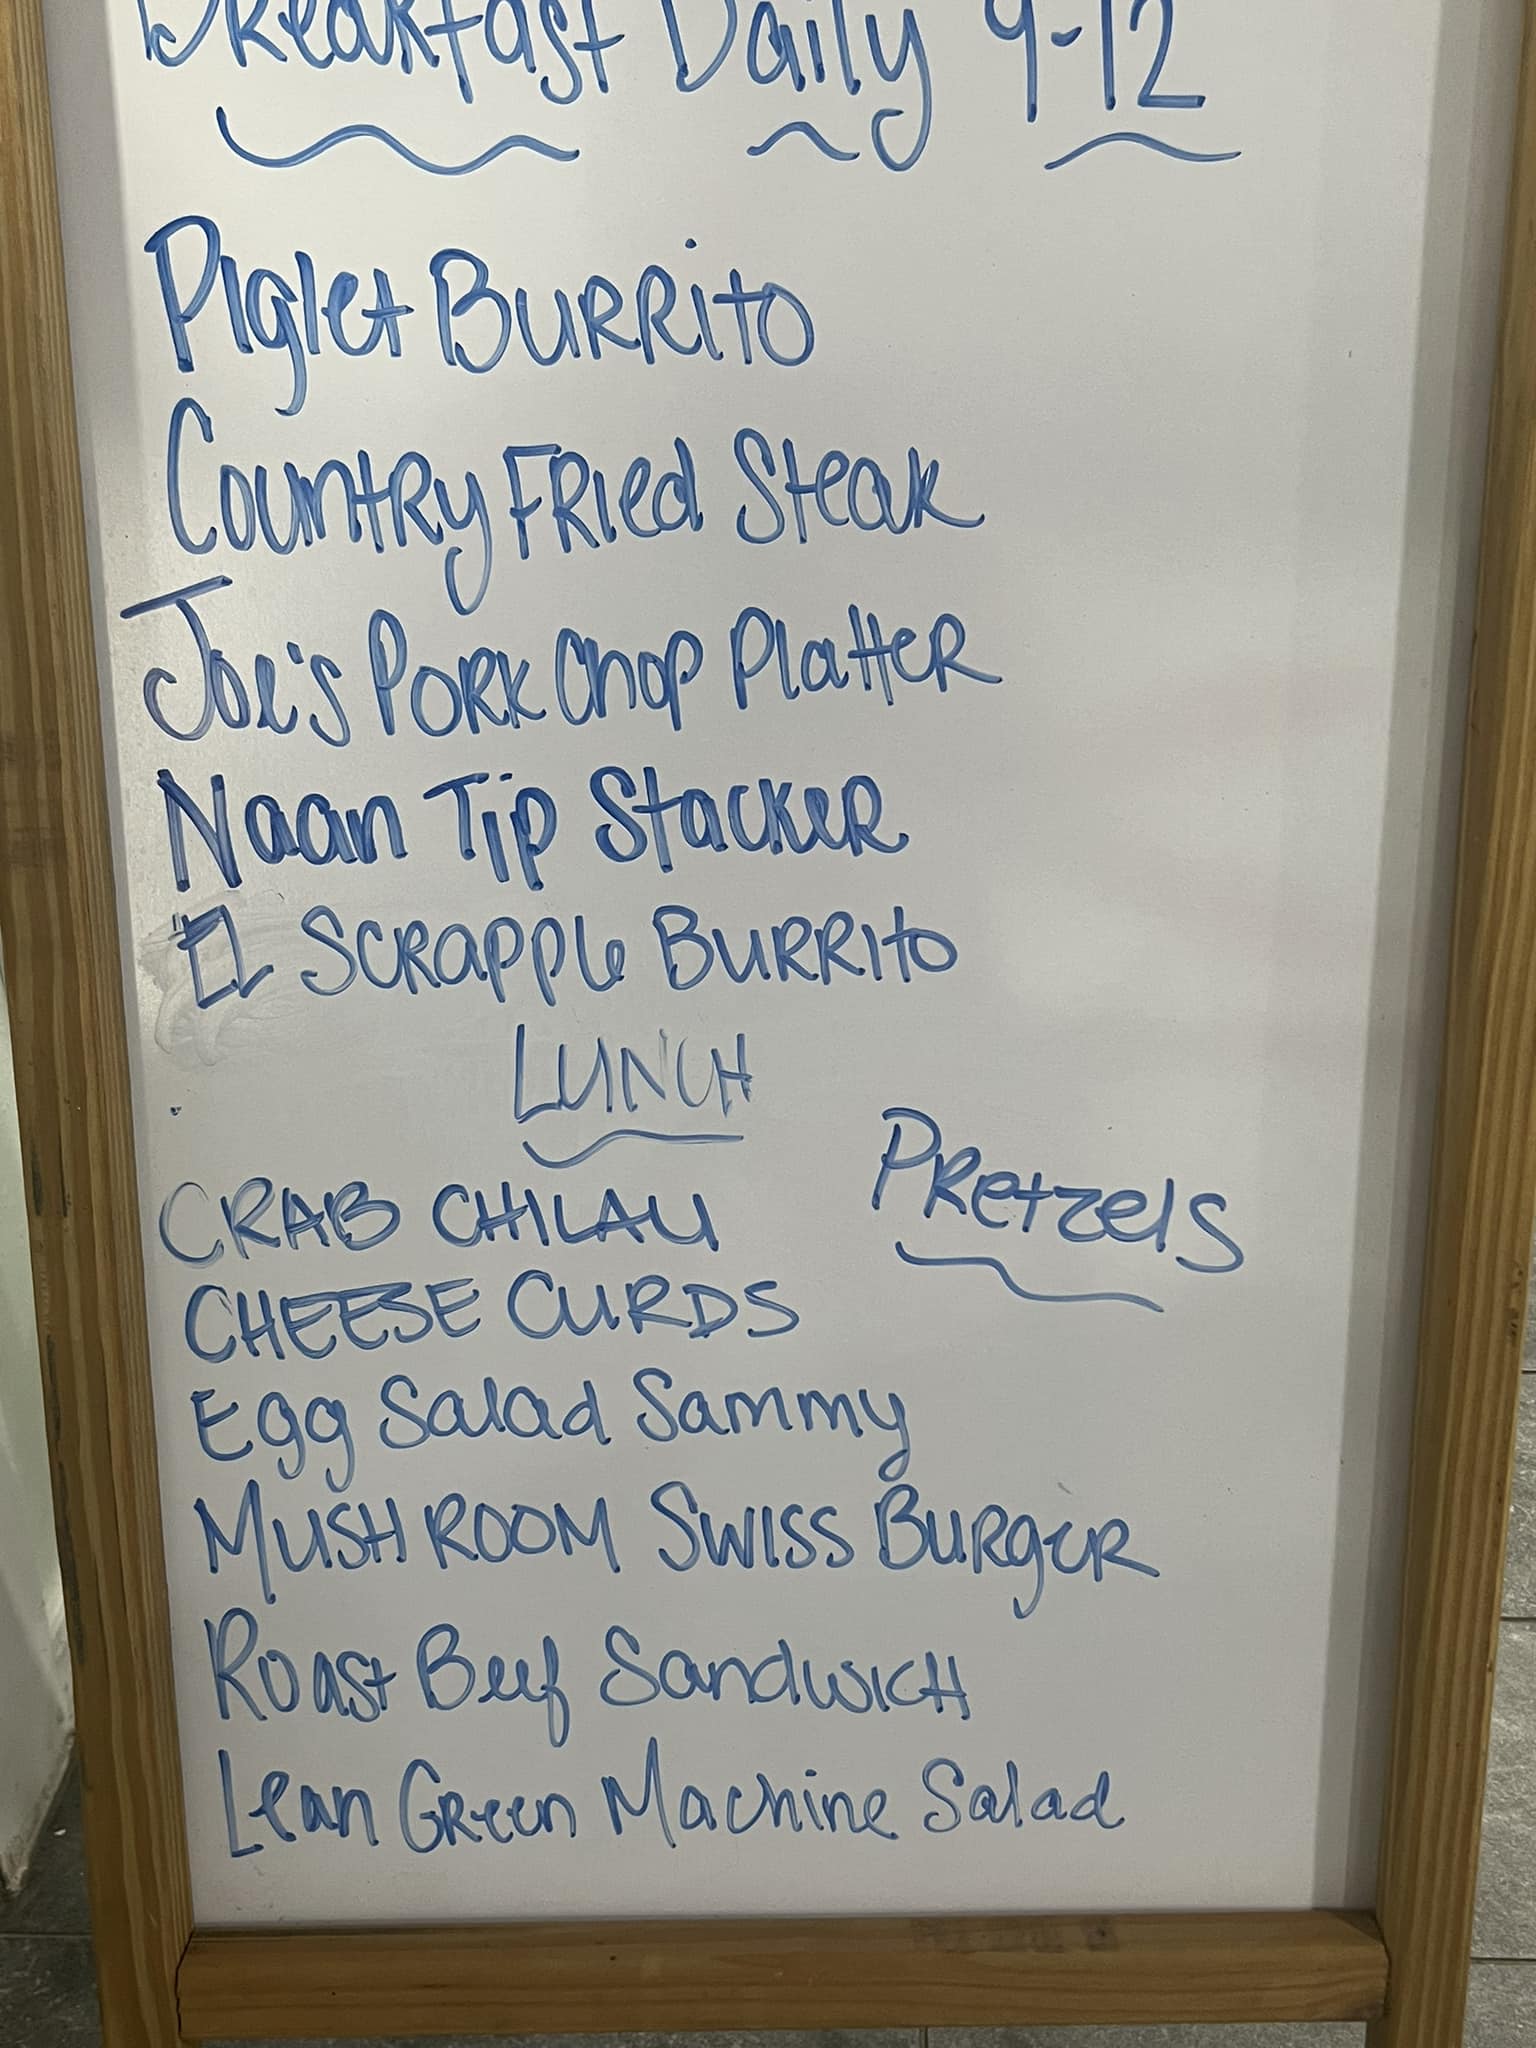 Breakfast Daily 9-12
Piglet Burrito
Country Fried Steak
Joe's Pork Chop Platter
Naan Tip Stacker
El Scrapple Burrito
LUNCH
CRAB CHILAU
Pretzels
CHEESE CURDS
Egg Salad Sammy
MUSHROOM SWISS BURGER
Roast Beef Sandwich
Lean Green Machine Salad